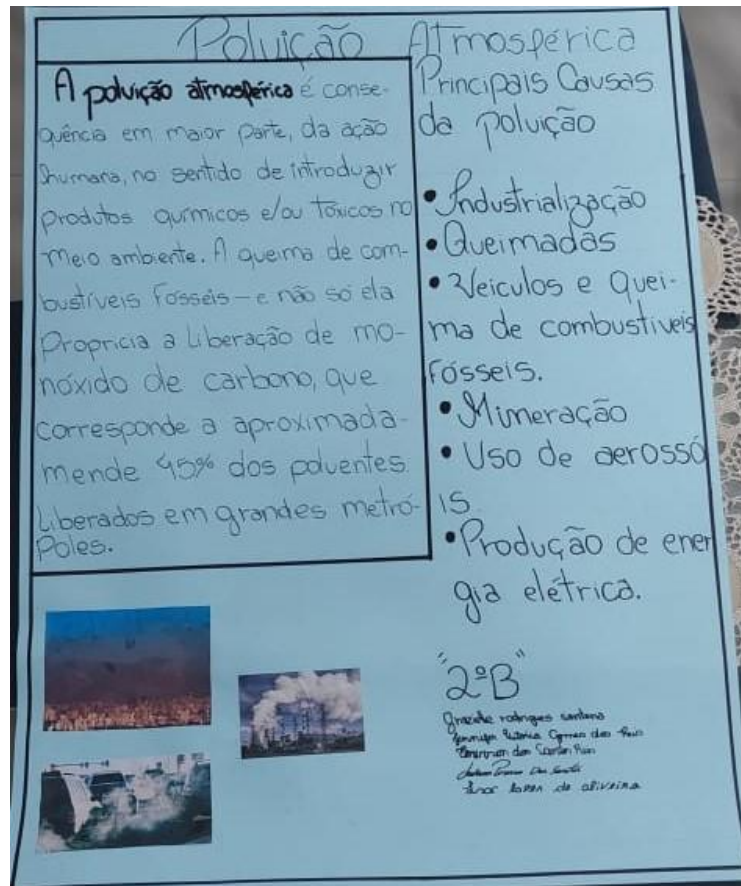 Poluição Atmosférica
A poluição atmosférica é conse-
quência em maior parte, da ação
humana, no sentido de introduzir
produtos químicos e/ou tóxicos no
meio ambiente. A queima de com-
bustíveis Fósseis - e não só ela
Propricia a liberação de mo-
nóxido de carbono, que
corresponde a aproximada-
mende 45% dos poluentes
Liberados em grandes metró-
Poles.
Principais Causas
da Poluição
• Industrialização
• Queimadas
• Veiculos e Quei-
ma de combustiveis
Fósseis.
• Mineração
• Uso de aerossó
is
• Produção de ener
gia elétrica.
"2ºB"
Grazielle rodrigues santana
Gomes dos Reis
dos Santos Reis
Dos Santos
de oliveira